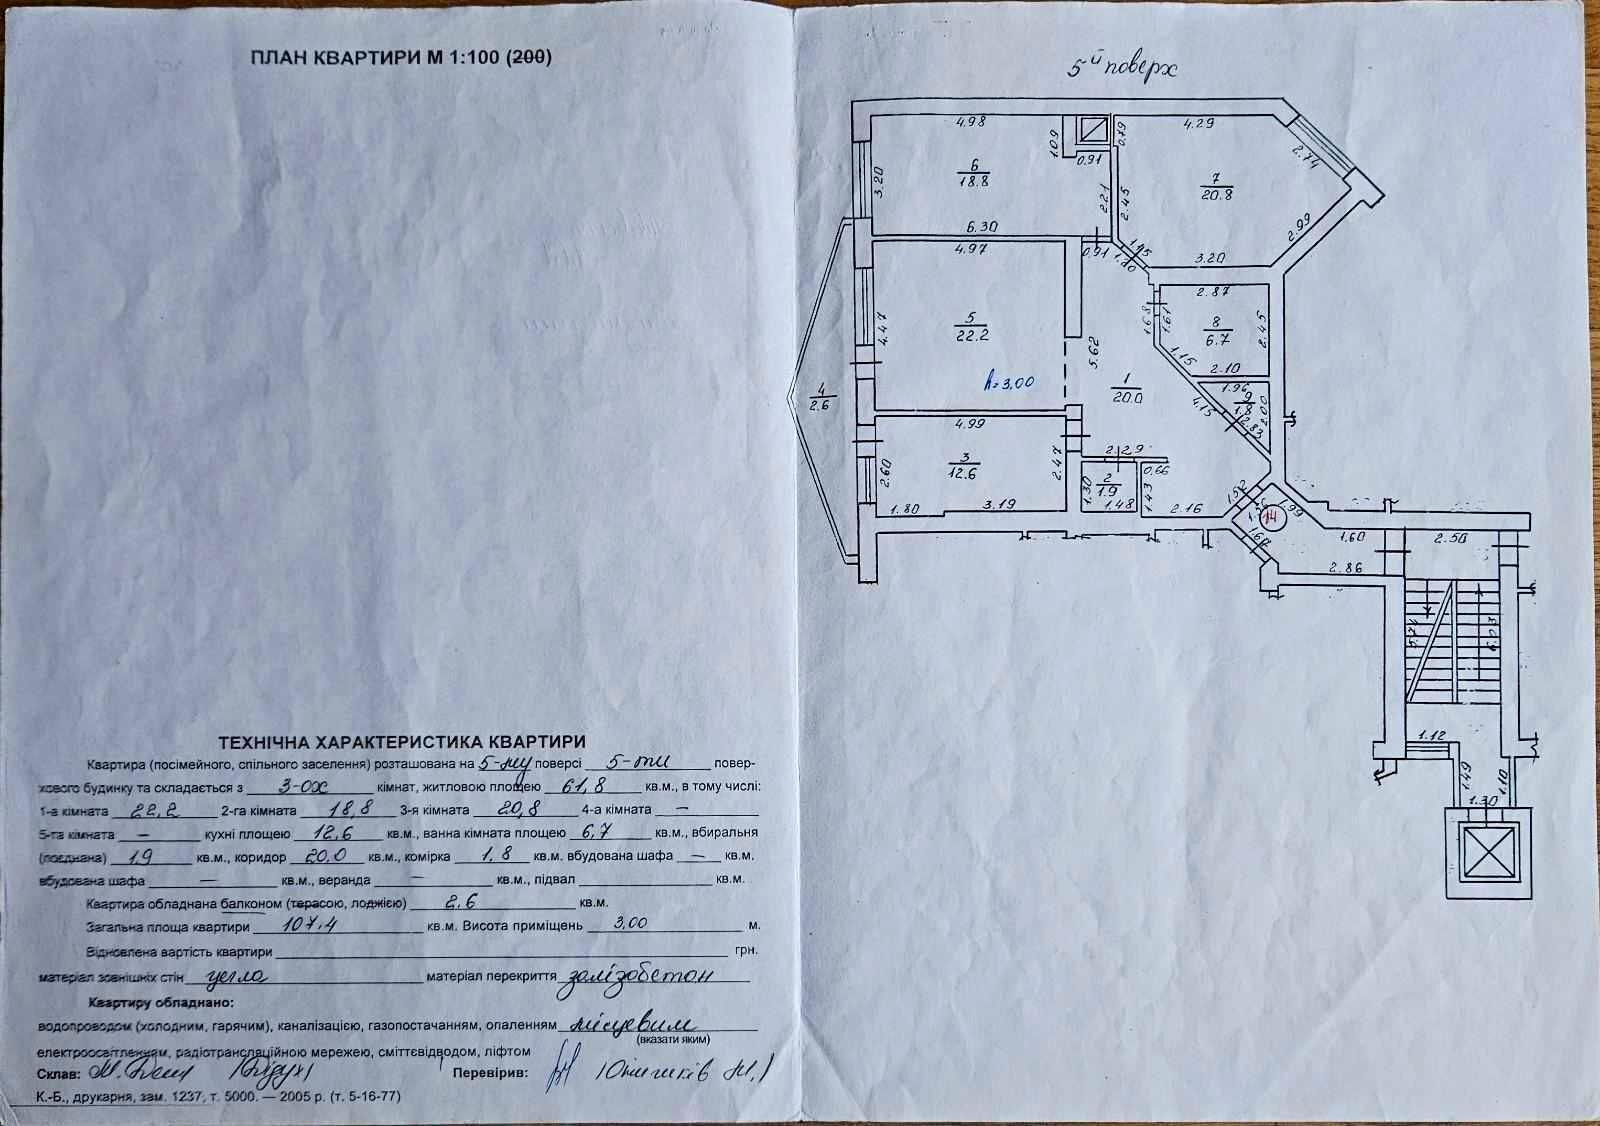 ПЛАН КВАРТИРИ М 1:100 (200)
ТЕХНІЧНА ХАРАКТЕРИСТИКА КВАРТИРИ
Квартира (посімейного, спільного заселення) розташована на 5-му поверсі 5-ти повер-
хового будинку та складається з 3-ох кімнат, житловою площею 61,8 кв.м., в тому числі:
1-а кімната 22,2 2-га кімната 18,8 3-я кімната 20,8 4-а кімната —
5-та кімната — кухні площею 12,6 кв.м., ванна кімната площею 6,7 кв.м., вбиральня
(поєднана) 1,9 кв.м., коридор 20,0 кв.м., комірка 1,8 кв.м. вбудована шафа — кв.м.
вбудована шафа — кв.м., веранда — кв.м., підвал кв.м.
Квартира обладнана балконом (терасою, лоджією) 2,6 кв.м.
Загальна площа квартири 107,4 кв.м. Висота приміщень 3,00 м.
Відновлена вартість квартири грн.
матеріал зовнішніх стін цегла матеріал перекриття залізобетон
Квартиру обладнано:
водопроводом (холодним, гарячим), каналізацією, газопостачанням, опаленням місцевим
(вказати яким)
електроосвітленням, радіотрансляційною мережею, сміттєвідводом, ліфтом
Склав: Перевірив:
К.-Б., друкарня, зам. 1237, т. 5000. — 2005 р. (т. 5-16-77)
5й поверх
4.98
1.09
0.91
0.79
4.29
2.74
3.20
6
18.8
2.21
2.45
7
20.8
2.99
6.30
4.97
0.91
1.45
3.20
4.47
5
22.2
5.62
1.68
1.61
2.87
8
6.7
2.45
1.15
2.10
h=3,00
4
2.6
1
20.0
1.96
9
1.8
2.00
4.15
2.83
4.99
2.60
3
12.6
2.47
2.29
0.66
1.30
2
1.9
1.48
1.43
1.80
3.19
2.16
1.52
14
1.99
1.67
1.60
2.50
2.86
5.74
6.03
1.12
1.49
1.10
1.30